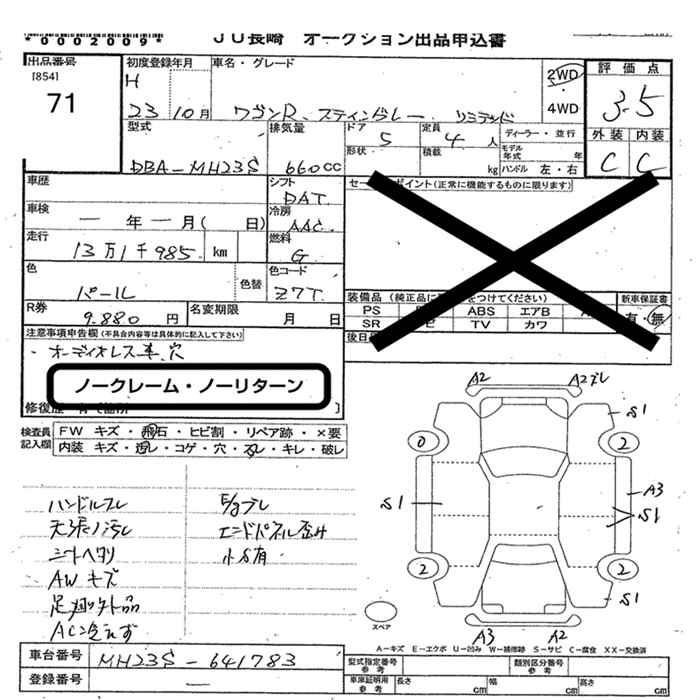 *0002009* JU長崎 オークション出品申込書
出品番号 初度登録年月 車名・グレード 2WD 評価点
[854] H
71 23 10月 ワゴンR スティングレー リミテッド 4WD 3.5
型式 排気量 ドア 5 定員 4人 ディーラー・並行 外装 内装
形状 積載 モデル年式 年
DBA-MH23S 660cc kg ハンドル 左・右 C C
車歴 シフト セールスポイント(正常に機能するものに限ります)
DAT
車検 冷房
一年一月( 日) AAC
走行 燃料
13万1千985 km G
色 色替 色コード 装備品(純正品に をつけてください) 新車保証書
パール Z7T PS ABS エアB 有・無
R券 名変期限 SR TV カワ
9.880円 月 日 後日
注意事項申告欄(不具合内容等は具体的に記入して下さい)
・オーディオレス車、穴
ノークレーム・ノーリターン
修復歴
検査員記入欄 FW キズ・飛石・ヒビ割・リペア跡・×要
内装 キズ・汚レ・コゲ・穴・スレ・キレ・破レ
A2 A2ズレ
S1
0 2
A3
S1 S1
2 2
S1
A3 A2
ハンドルスレ E/gブレ
天張り汚レ エンドパネル歪み
シートヘタリ 小キズ有
AWキズ
足廻り外品
AC冷えず
スペア
A-キズ E-エクボ U-凹み W-補修跡 S-サビ C-腐食 XX-交換済
車台番号 MH23S-641783 型式指定番号 参考 類別区分番号 参考
登録番号 ー 車庫証明用 参考 長さ cm 幅 cm 高さ cm